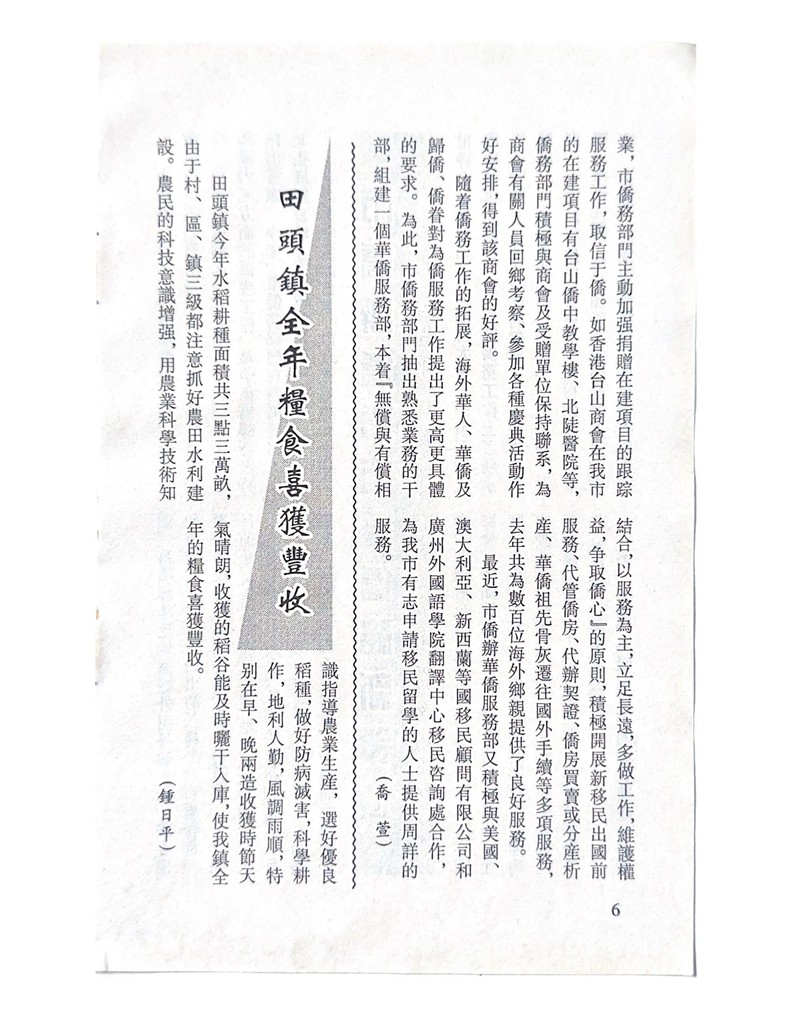 業，市僑務部門主動加强捐贈在建項目的跟踪
服務工作，取信于僑。如香港台山商會在我市
的在建項目有台山僑中教學樓、北陡醫院等，
僑務部門積極與商會及受贈單位保持聯系，為
商會有關人員回鄉考察、參加各種慶典活動作
好安排，得到該商會的好評。
隨着僑務工作的拓展，海外華人、華僑及
歸僑、僑眷對為僑服務工作提出了更高更具體
的要求。為此，市僑務部門抽出熟悉業務的干
部，組建一個華僑服務部，本着『無償與有償相
結合，以服務為主，立足長遠，多做工作，維護權
益，争取僑心』的原則，積極開展新移民出國前
服務、代管僑房、代辦契證、僑房買賣或分産析
産、華僑祖先骨灰遷往國外手續等多項服務，
去年共為數百位海外鄉親提供了良好服務。
最近，市僑辦華僑服務部又積極與美國、
澳大利亞、新西蘭等國移民顧問有限公司和
廣州外國語學院翻譯中心移民咨詢處合作，
為我市有志申請移民留學的人士提供周詳的
服務。
（喬萱）
田頭鎮全年糧食喜獲豐收
田頭鎮今年水稻耕種面積共三點三萬畝，
由于村、區、鎮三級都注意抓好農田水利建
設。農民的科技意識增强，用農業科學技術知
識指導農業生産，選好優良
稻種，做好防病滅害，科學耕
作，地利人勤，風調雨順，特
别在早、晚兩造收獲時節天
氣晴朗，收獲的稻谷能及時曬干入庫，使我鎮全
年的糧食喜獲豐收。
（鍾日平）
6